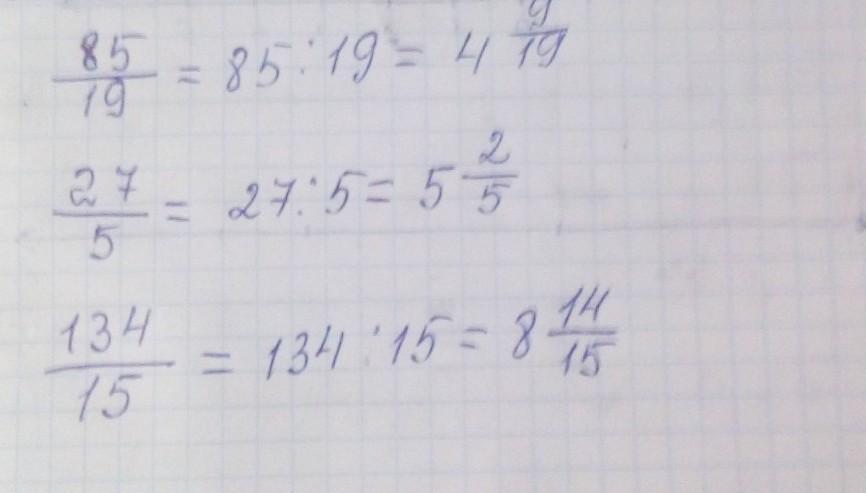 85/19 = 85:19 = 4 9/19
27/5 = 27:5 = 5 2/5
134/15 = 134:15 = 8 14/15